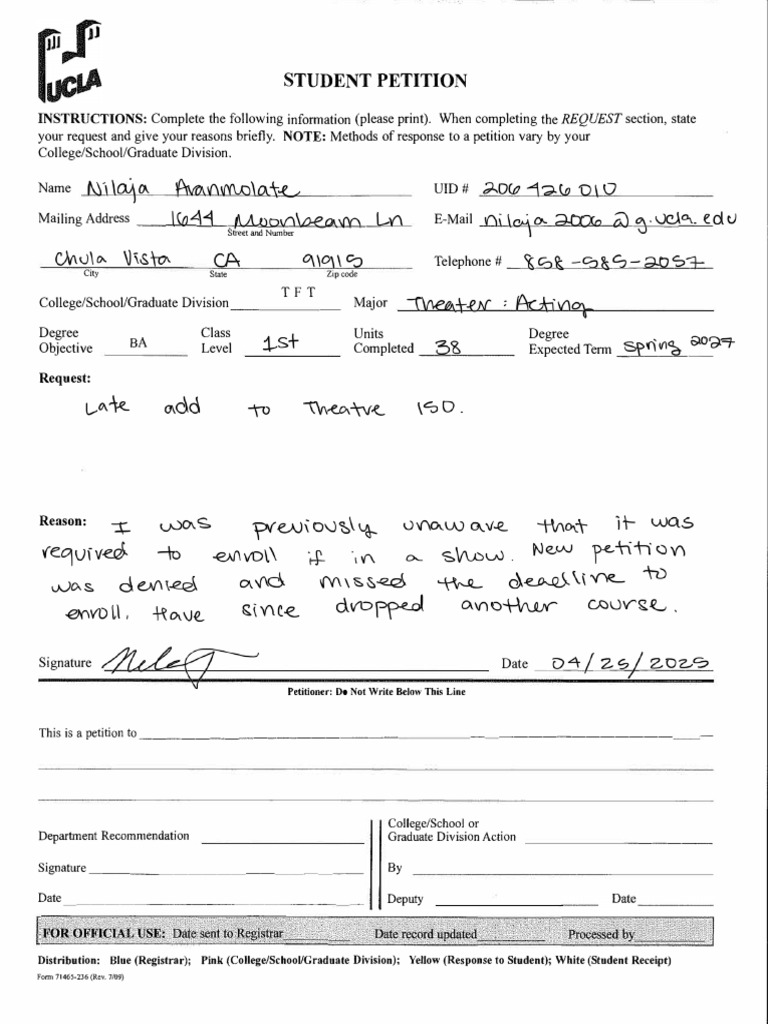 UCLA
STUDENT PETITION
INSTRUCTIONS: Complete the following information (please print). When completing the REQUEST section, state
your request and give your reasons briefly. NOTE: Methods of response to a petition vary by your
College/School/Graduate Division.
Name Nilaja Aranmolate UID # 206 426 010
Mailing Address 1644 Moonbeam Ln E-Mail nilaja2006@g.ucla.edu
Street and Number
Chula Vista CA 91915 Telephone # 858-585-2057
City State Zip code
College/School/Graduate Division TFT Major Theater: Acting
Degree Class Units Degree
Objective BA Level 1st Completed 38 Expected Term Spring
Request:
Late add to Theatre 150.
Reason: I was previously unaware that it was
required to enroll if in a show. New petition
was denied and missed the deadline to
enroll. Have since dropped another course.
Signature Date 04/25/2025
Petitioner: Do Not Write Below This Line
This is a petition to
College/School or
Department Recommendation Graduate Division Action
Signature By
Date Deputy Date
FOR OFFICIAL USE: Date sent to Registrar Date record updated Processed by
Distribution: Blue (Registrar); Pink (College/School/Graduate Division); Yellow (Response to Student); White (Student Receipt)
Form 71465-236 (Rev. 7/09)